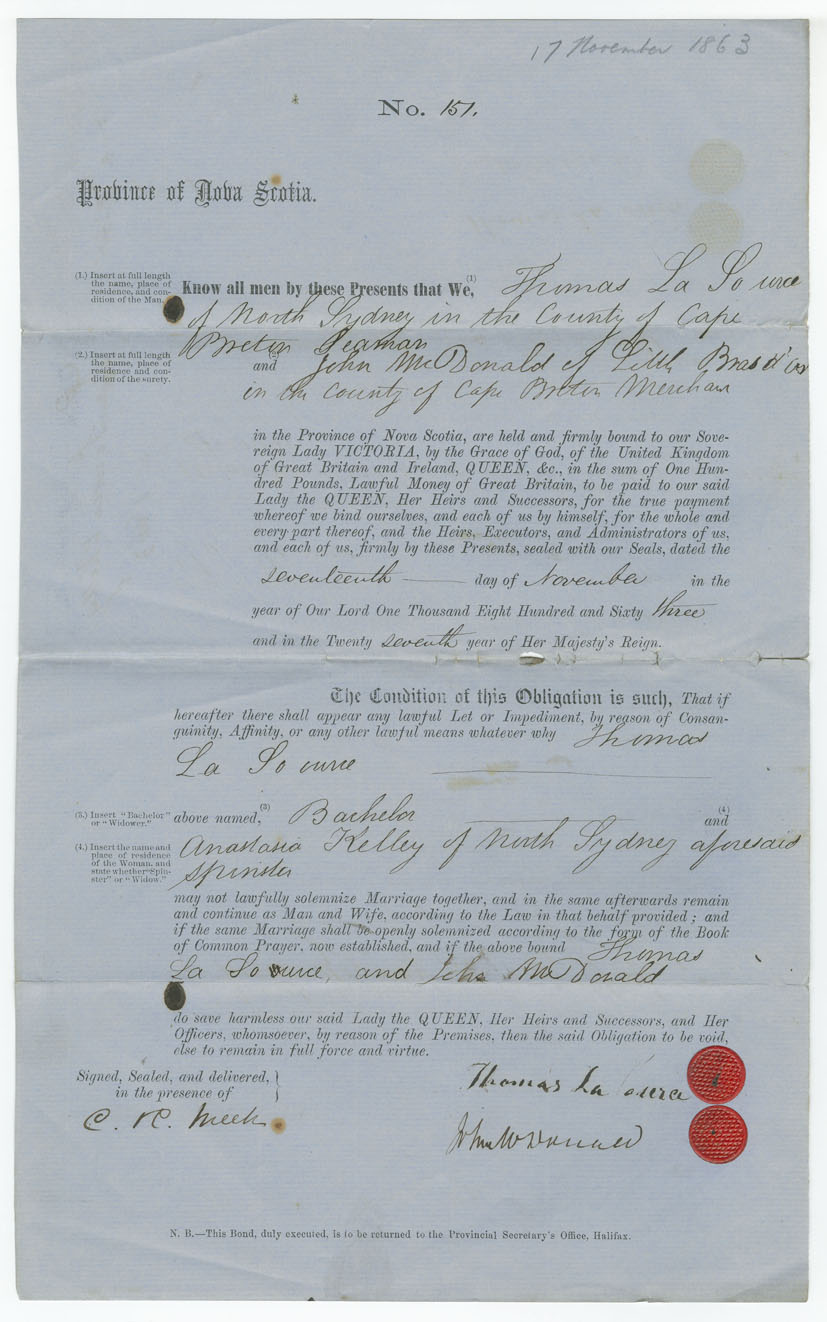 17 November 1863
No. 151.
Province of Nova Scotia.
(1.) Insert at full length
the name, place of
residence, and con-
dition of the Man.
Know all men by these Presents that We, (1) Thomas La So urce
of North Sydney in the County of Cape
Breton Seaman
(2.) Insert at full length
the name, place of
residence and con-
dition of the surety.
and (2) John McDonald of Little Bras d'Or
in the County of Cape Breton Merchant
in the Province of Nova Scotia, are held and firmly bound to our Sove-
reign Lady VICTORIA, by the Grace of God, of the United Kingdom
of Great Britain and Ireland, QUEEN, &c., in the sum of One Hun-
dred Pounds, Lawful Money of Great Britain, to be paid to our said
Lady the QUEEN, Her Heirs and Successors, for the true payment
whereof we bind ourselves, and each of us by himself, for the whole and
every part thereof, and the Heirs, Executors, and Administrators of us,
and each of us, firmly by these Presents, sealed with our Seals, dated the
seventeenth day of November in the
year of Our Lord One Thousand Eight Hundred and Sixty three
and in the Twenty seventh year of Her Majesty's Reign.
The Condition of this Obligation is such, That if
hereafter there shall appear any lawful Let or Impediment, by reason of Consan-
guinity, Affinity, or any other lawful means whatever why Thomas
La So urce
(3.) Insert "Bachelor"
or "Widower."
above named, (3) Bachelor and (4)
(4.) Insert the name and
place of residence
of the Woman, and
state whether "Spin-
ster" or "Widow."
Anastasia Kelley of North Sydney aforesaid
Spinster
may not lawfully solemnize Marriage together, and in the same afterwards remain
and continue as Man and Wife, according to the Law in that behalf provided; and
if the same Marriage shall be openly solemnized according to the form of the Book
of Common Prayer, now established, and if the above bound Thomas
La So urce, and John McDonald
do save harmless our said Lady the QUEEN, Her Heirs and Successors, and Her
Officers, whomsoever, by reason of the Premises, then the said Obligation to be void,
else to remain in full force and virtue.
Signed, Sealed, and delivered,
in the presence of
Thomas La
C. R. Meek
John McDonald
N. B.—This Bond, duly executed, is to be returned to the Provincial Secretary's Office, Halifax.